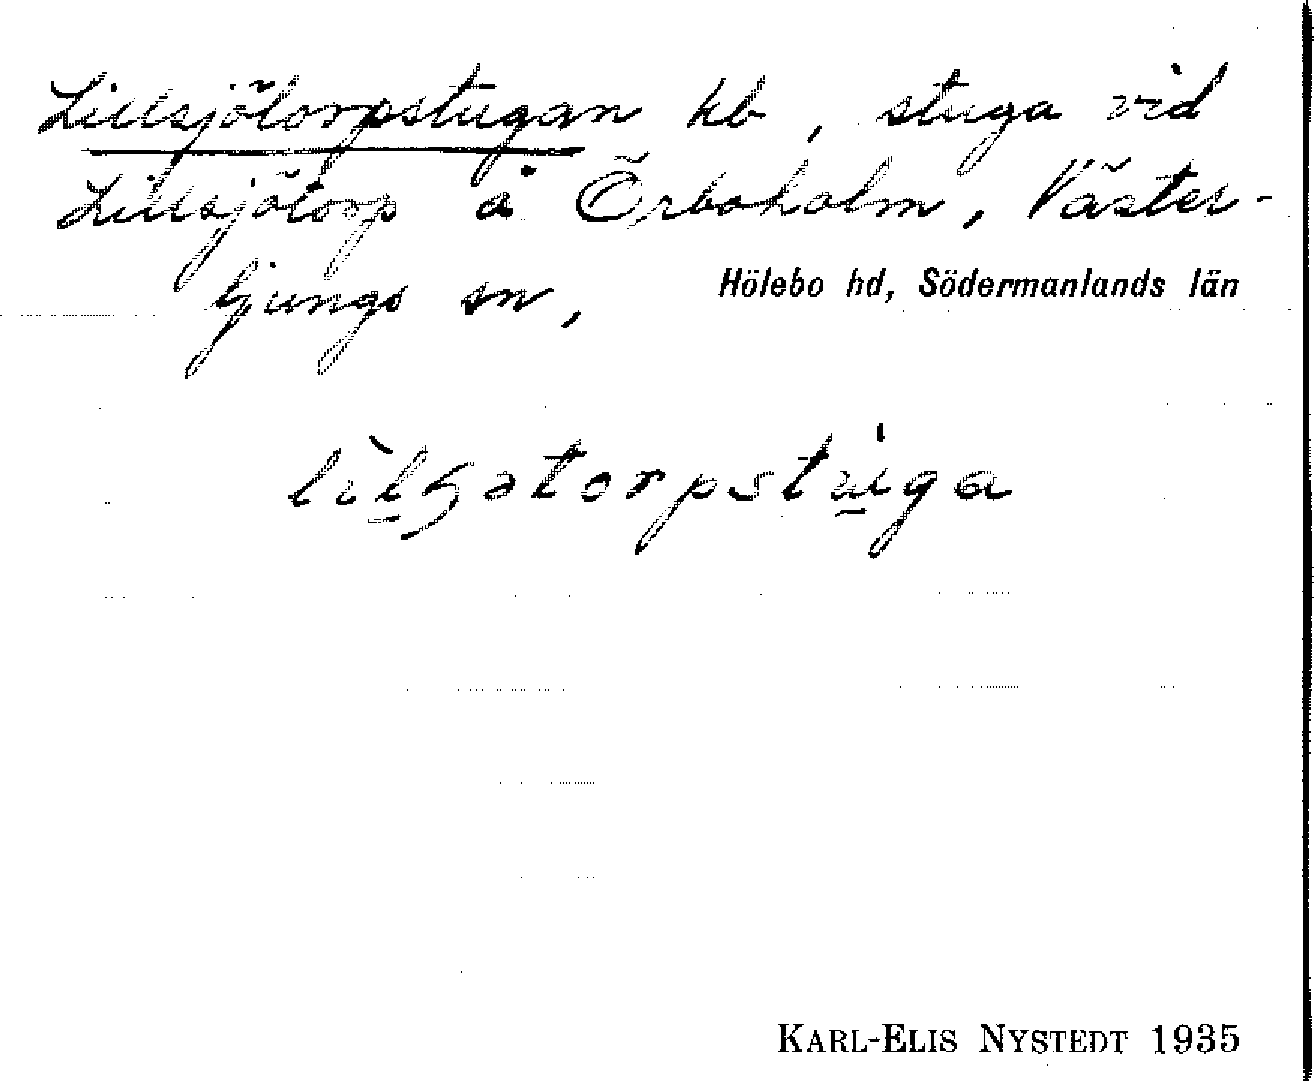 Lillsjötorpstugan hb, stuga vid
Lillsjötorp å Örboholm, Väster-
ljungs sn, Hölebo hd, Södermanlands län
KARL-ELIS NYSTEDT 1935